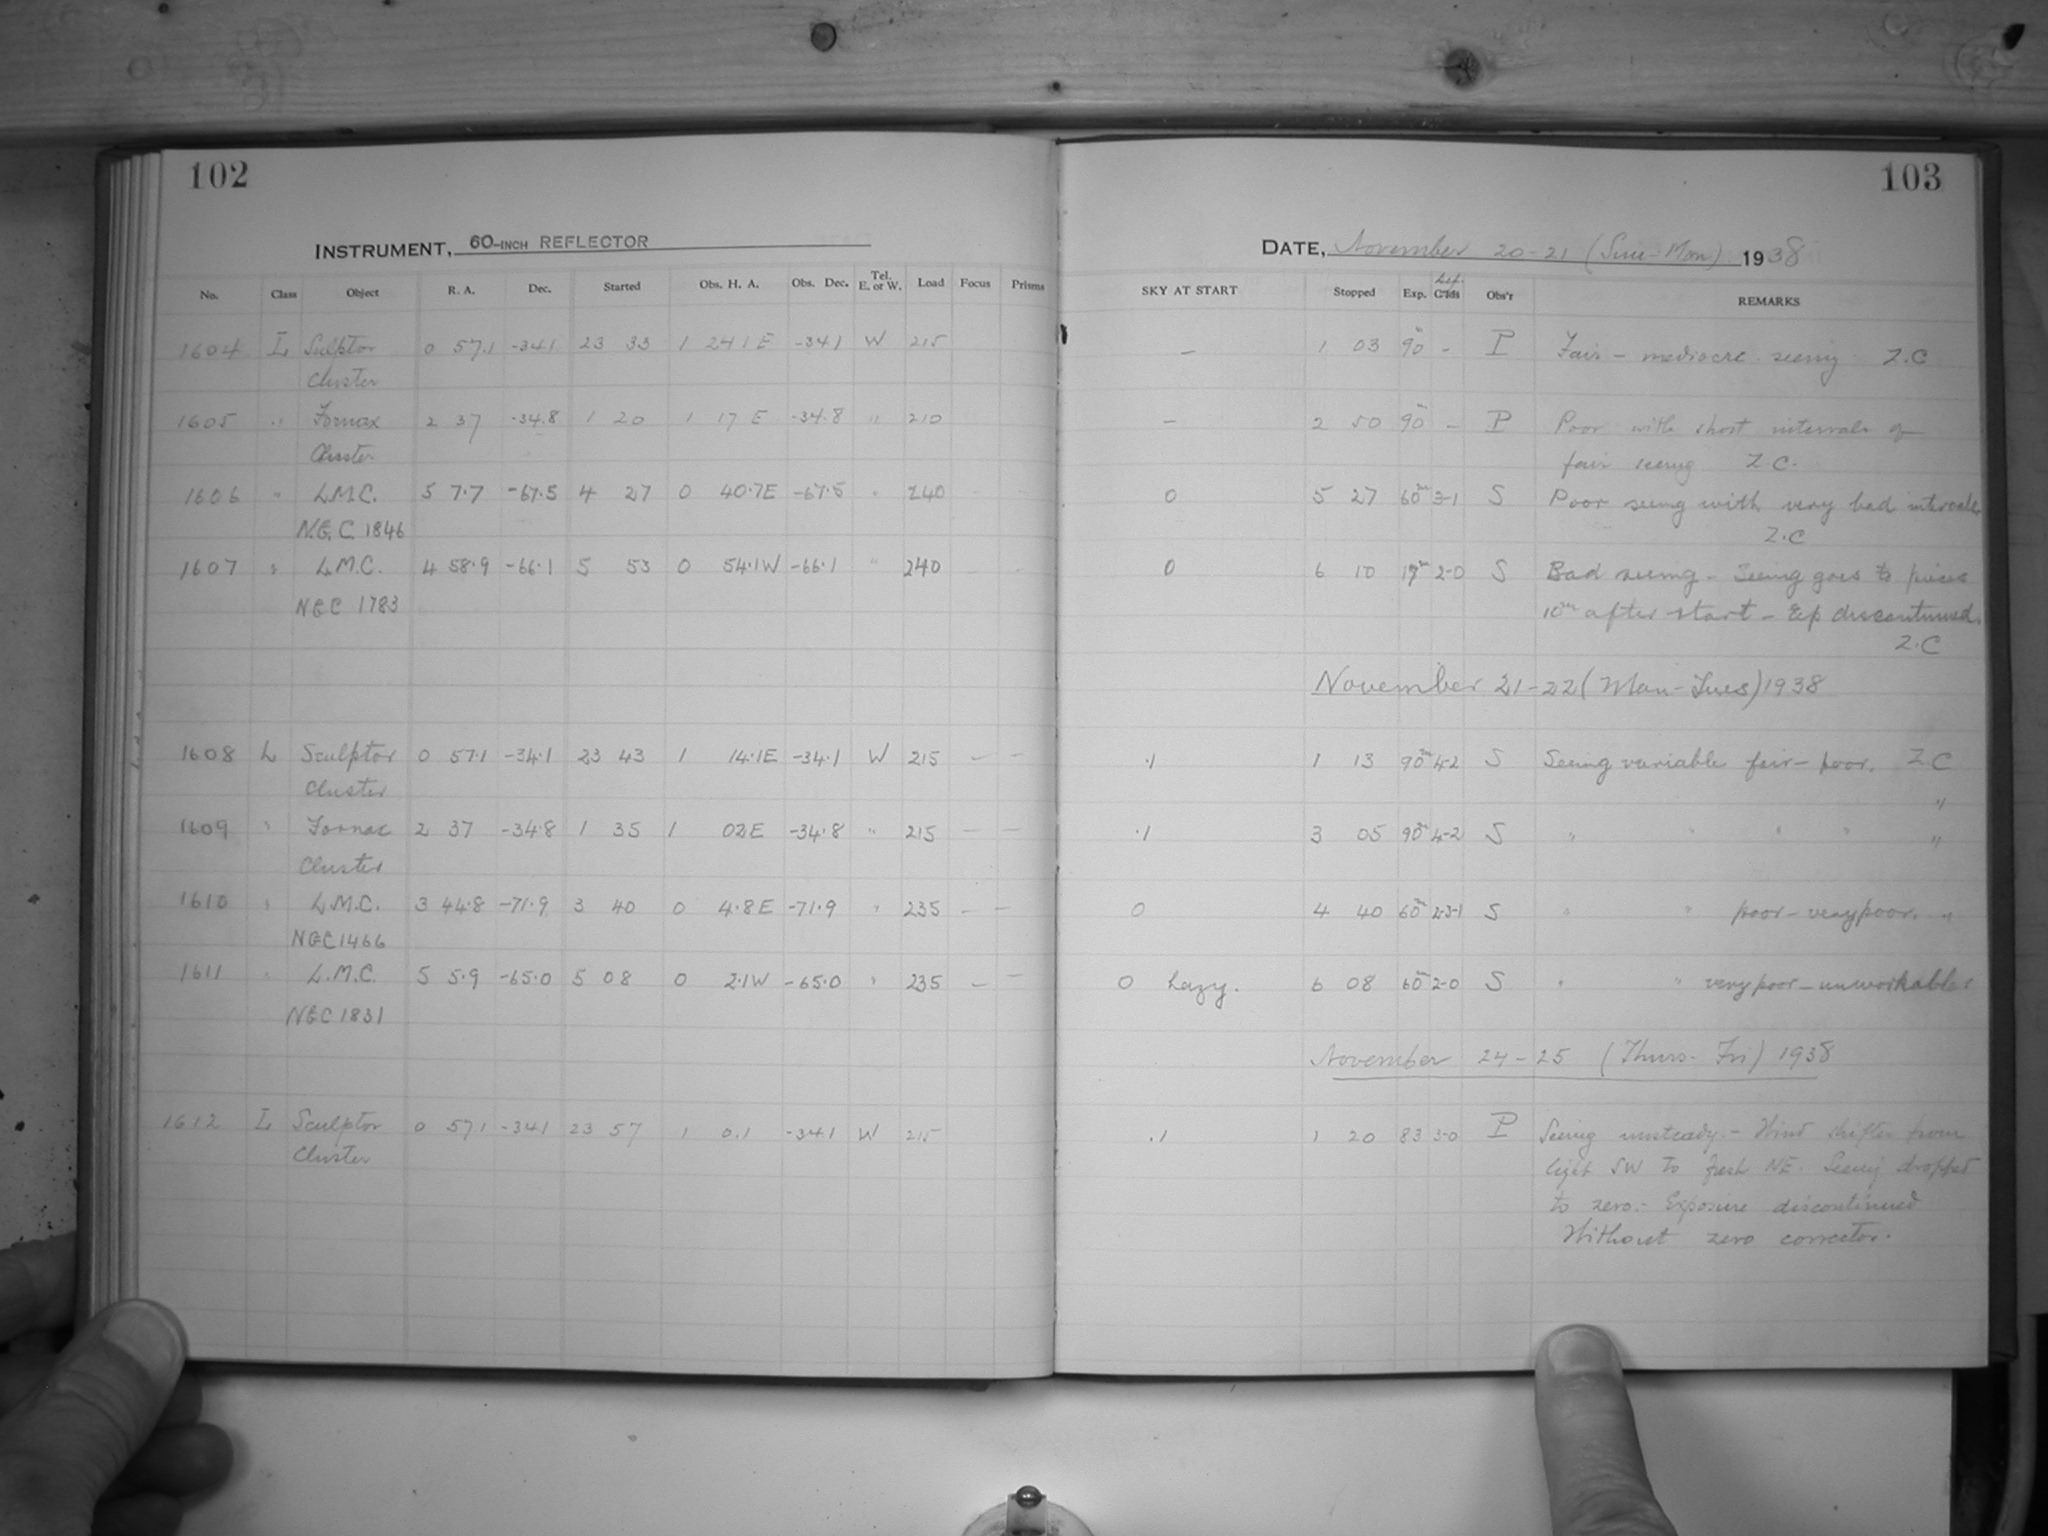 102
103
INSTRUMENT, 60-INCH REFLECTOR
DATE, November 20-21 (Sun-Mon) 1938
No. Class Object R. A. Dec. Started Obs. H. A. Obs. Dec. Tel. E. or W. Load Focus Prisms
SKY AT START Stopped Exp. G'ids Obs'r REMARKS
1604 L Sculptor 0 57.1 -34.1 23 33 1 24.1 E -34.1 W 215 — 1 03 90m - P Fair - mediocre seeing. Z.C
Cluster
1605 " Fornax 2 37 -34.8 1 20 1 17 E -34.8 " 210 — 2 50 90m - P Poor with short intervals of
Cluster fair seeing Z.C.
1606 " L.M.C. 5 7.7 -67.5 4 27 0 40.7E -67.5 " 240 0 5 27 60m 3-1 S Poor seeing with very bad intervals
N.G.C. 1846 Z.C
1607 " L.M.C. 4 58.9 -66.1 5 53 0 54.1W -66.1 " 240 0 6 10 17m 2-0 S Bad seeing - Seeing goes to pieces
NGC 1783 10m after start - Exp discontinued.
Z.C
November 21-22 (Mon-Tues) 1938
1608 L Sculptor 0 57.1 -34.1 23 43 1 14.1E -34.1 W 215 — — .1 1 13 90m 4-2 S Seeing variable fair - poor. Z C
Cluster "
1609 " Fornax 2 37 -34.8 1 35 1 02E -34.8 " 215 — — .1 3 05 90m 4-2 S " " " " "
Cluster
1610 " L.M.C. 3 44.8 -71.9 3 40 0 4.8E -71.9 " 235 — — 0 4 40 60m 2-3-1 S " " poor - very poor. "
NGC 1466
1611 " L.M.C. 5 5.9 -65.0 5 08 0 2.1W -65.0 " 235 — — 0 hazy. 6 08 60m 2-0 S " " very poor - unworkable
NGC 1831
November 24-25 (Thurs- Fri) 1938
1612 L Sculptor 0 57.1 -34.1 23 57 1 0.1 -34.1 W 215 .1 1 20 83 3-0 P Seeing unsteady. - Wind shifts from
Cluster light SW to fresh NE. Seeing dropped
to zero. - Exposure discontinued
Without zero corrector.